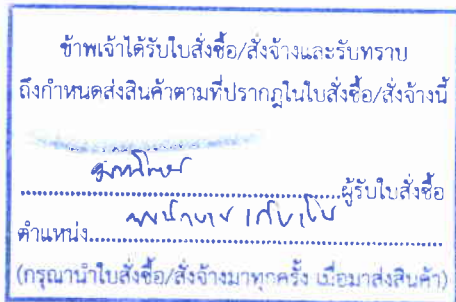 ข้าพเจ้าได้รับใบสั่งซื้อ/สั่งจ้างและรับทราบ
ถึงกำหนดส่งสินค้าตามที่ปรากฎในใบสั่งซื้อ/สั่งจ้างนี้
................................................ผู้รับใบสั่งซื้อ
ตำแหน่ง................................................
(กรุณานำใบสั่งซื้อ/สั่งจ้างมาทุกครั้ง เมื่อมาส่งสินค้า)